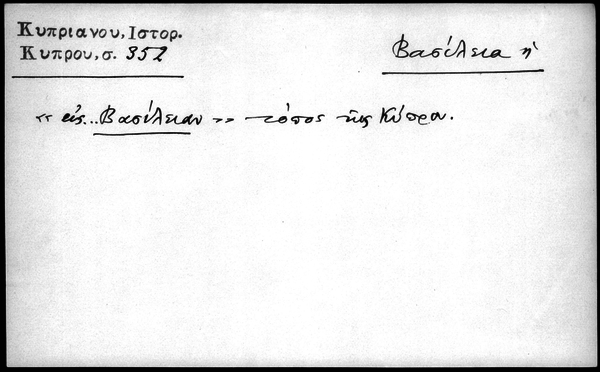 Κυπριανου, Ιστορ.
Κυπρου, σ. 352
Βασίλεια ἡ
« εἰς.. Βασίλειαν » τόπος τῆς Κύπρου.